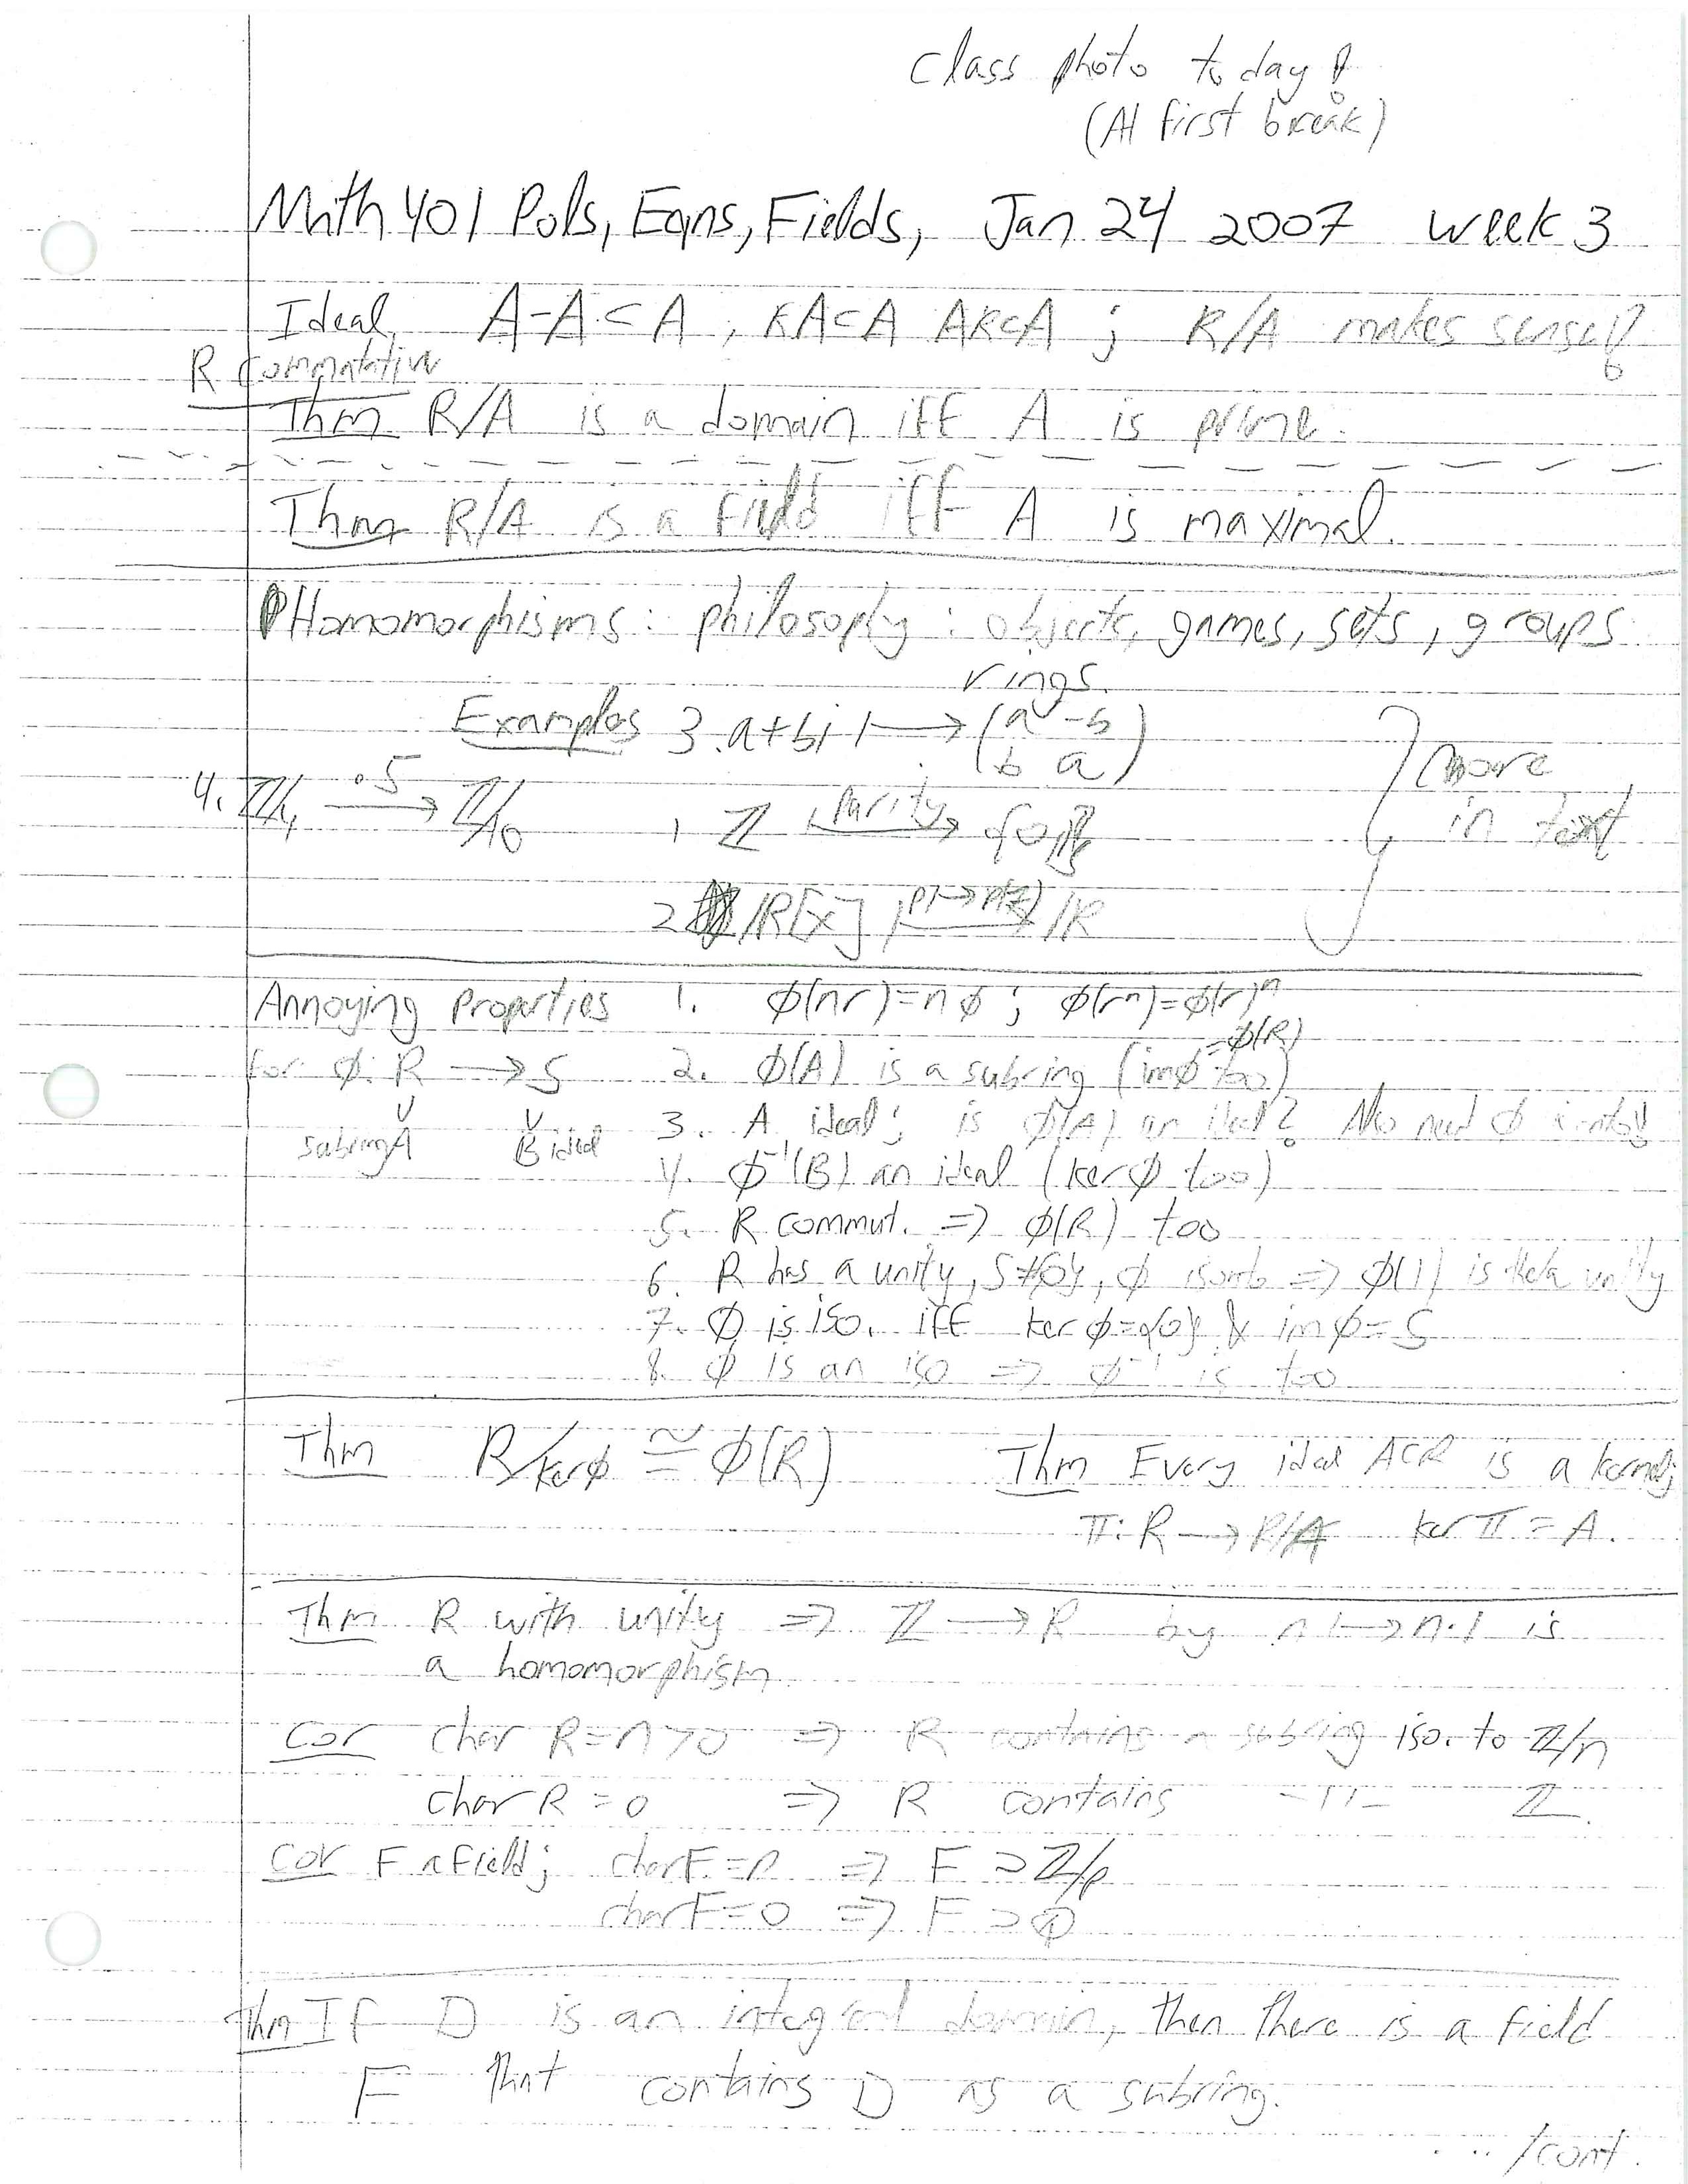 Class photo today!
(At first break)
Math 401 Pols, Eqns, Fields, Jan 24 2007 week 3
Ideal, A-A⊂A, RA⊂A AR⊂A ; R/A makes sense!
R commutative
Thm R/A is a domain iff A is prime.
Thm R/A is a field iff A is maximal.
Homomorphisms: philosophy: objects, games, sets, groups
rings.
Examples 3. a+bi ↦ (a -b
b a)
4. Z/4 —·5→ Z/10
1 Z —parity→ {0,1}
2 R[x] —p↦p(7)→ R
} more
in text
Annoying properties 1. φ(nr)=nφ ; φ(rⁿ)=φ(r)ⁿ
for φ: R → S 2. φ(A) is a subring (imφ=φ(R) too)
∪ ∪
subring A B ideal 3. A ideal; is φ(A) an ideal? Also need φ onto!
4. φ⁻¹(B) an ideal (ker φ too)
5. R commut. ⇒ φ(R) too
6. R has a unity, S≠{0}, φ is onto ⇒ φ(1) is the unity
7. φ is iso. iff ker φ={0} & im φ=S
8. φ is an iso ⇒ φ⁻¹ is too
Thm R/ker φ ≅ φ(R) Thm Every ideal A⊂R is a kernel;
π: R → R/A ker π = A.
Thm R with unity ⇒ Z → R by n ↦ n·1 is
a homomorphism.
Cor char R=n>0 ⇒ R contains a subring iso. to Z/n
char R=0 ⇒ R contains -"- Z.
Cor F a field; char F=p ⇒ F ⊃ Z/p
char F=0 ⇒ F ⊃ Q
Thm If D is an integral domain, then there is a field
F that contains D as a subring.
... /cont.